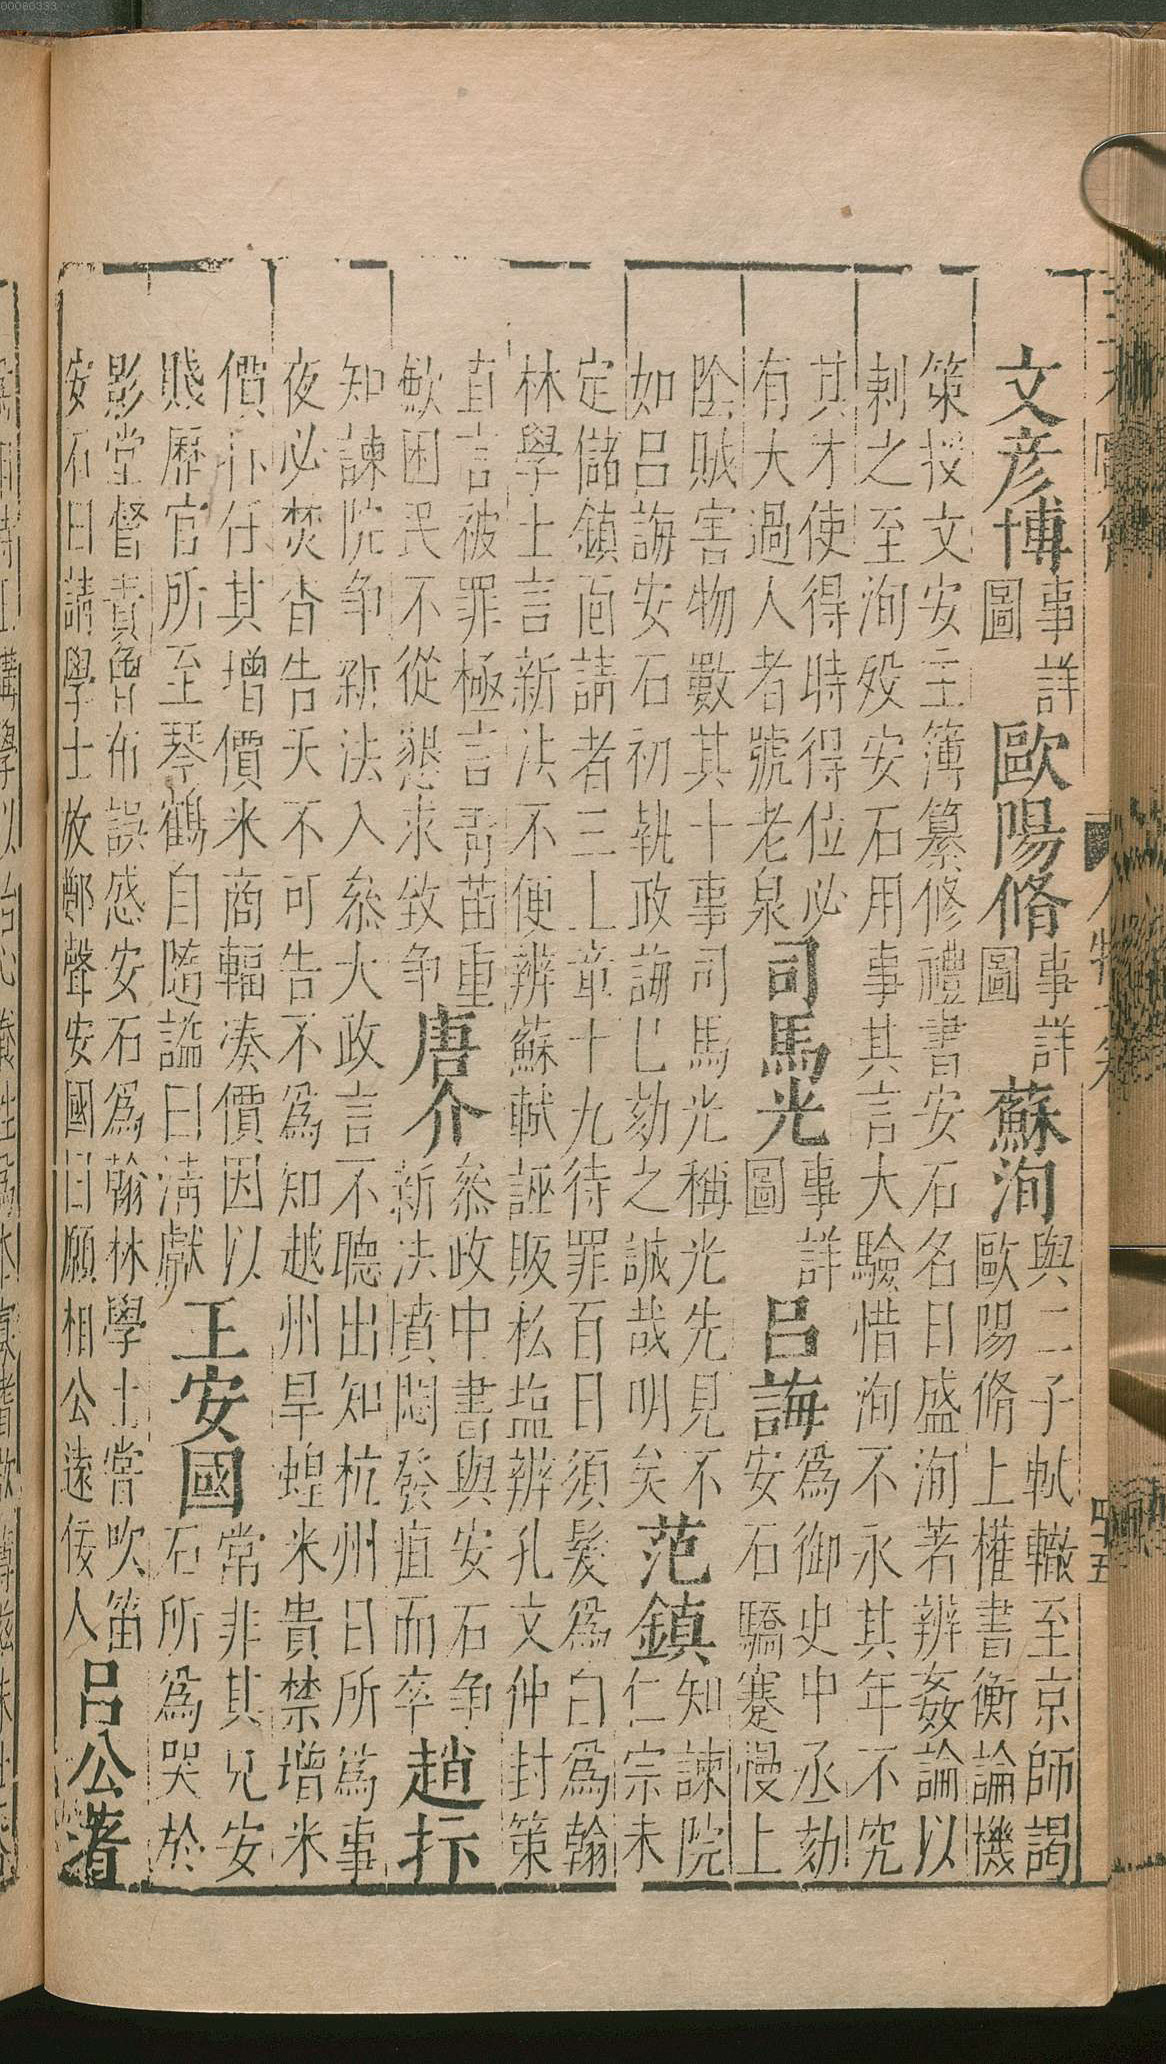 文彥博事詳圖 歐陽脩事詳圖 蘇洵與二子軾轍至京師謁
歐陽脩上權書衡論機
策授文安主簿纂修禮書安石名日盛洵若辨姦論以
剌之至洵歿安石用事其言大驗惜洵不永其年不究
其才使得時得位必
有大過人者號老泉
司馬光事詳圖 呂誨為御史中丞劾
安石驕蹇慢上
陰賊害物數其十事司馬光稱光先見不
如呂誨安石初執政誨已劾之誠哉明矣
范鎮知諫院
仁宗未
定儲鎮面請者三上章十九待罪百日須髮為白為翰
林學士言新法不便辨蘇軾誣販私塩辨孔文仲封策
直言被罪極言青苗重
歛困民不從懇求致爭
唐介叅政中書與安石爭
新法憤悶發疽而卒
趙抃
知諫院爭新法入叅大政言不聽出知杭州日所為事
夜必焚香告天不可告不為知越州旱蝗米貴禁增米
價抃任其增價米商輻湊價因以
賤歷官所至琴鶴自隨謚曰清獻
王安國常非其兄安
石所為哭於
影堂督責曾布誤惑安石為翰林學士嘗吹笛
安石曰請學士放鄭聲安國曰願相公遠佞人
呂公著